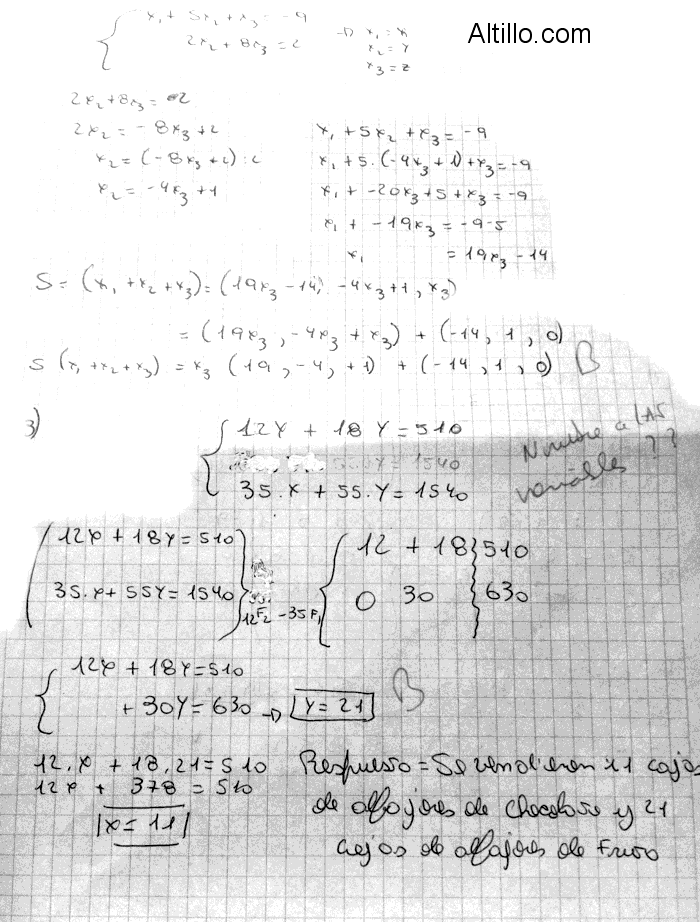 Altillo.com
x₁ + 5x₂ + x₃ = -9
2x₂ + 8x₃ = 2
x₁ = x
x₂ = y
x₃ = z
2x₂ + 8x₃ = 2
2x₂ = -8x₃ + 2
x₂ = (-8x₃ + 2) : 2
x₂ = -4x₃ + 1
x₁ + 5x₂ + x₃ = -9
x₁ + 5. (-4x₃ + 1) + x₃ = -9
x₁ + -20x₃ + 5 + x₃ = -9
x₁ + -19x₃ = -9-5
x₁ = 19x₃ - 14
S = (x₁ + x₂ + x₃) = (19x₃ - 14, -4x₃ + 1, x₃)
= (19x₃, -4x₃ + x₃) + (-14, 1, 0)
S (x₁ + x₂ + x₃) = x₃ (19, -4, +1) + (-14, 1, 0) B
3)
12Y + 18Y = 510
35.X + 55.Y = 1540
Nombre a las
variables ??
12X + 18Y = 510
35.X + 55Y = 1540
12F₂ - 35F₁
12 + 18 510
0 30 630
12X + 18Y = 510
+ 30Y = 630 → Y = 21 B
12.X + 18.21 = 510
12X + 378 = 510
X = 11
Respuesta = Se vendieron 11 cajas
de alfajores de chocolate y 21
cajas de alfajores de Fruta